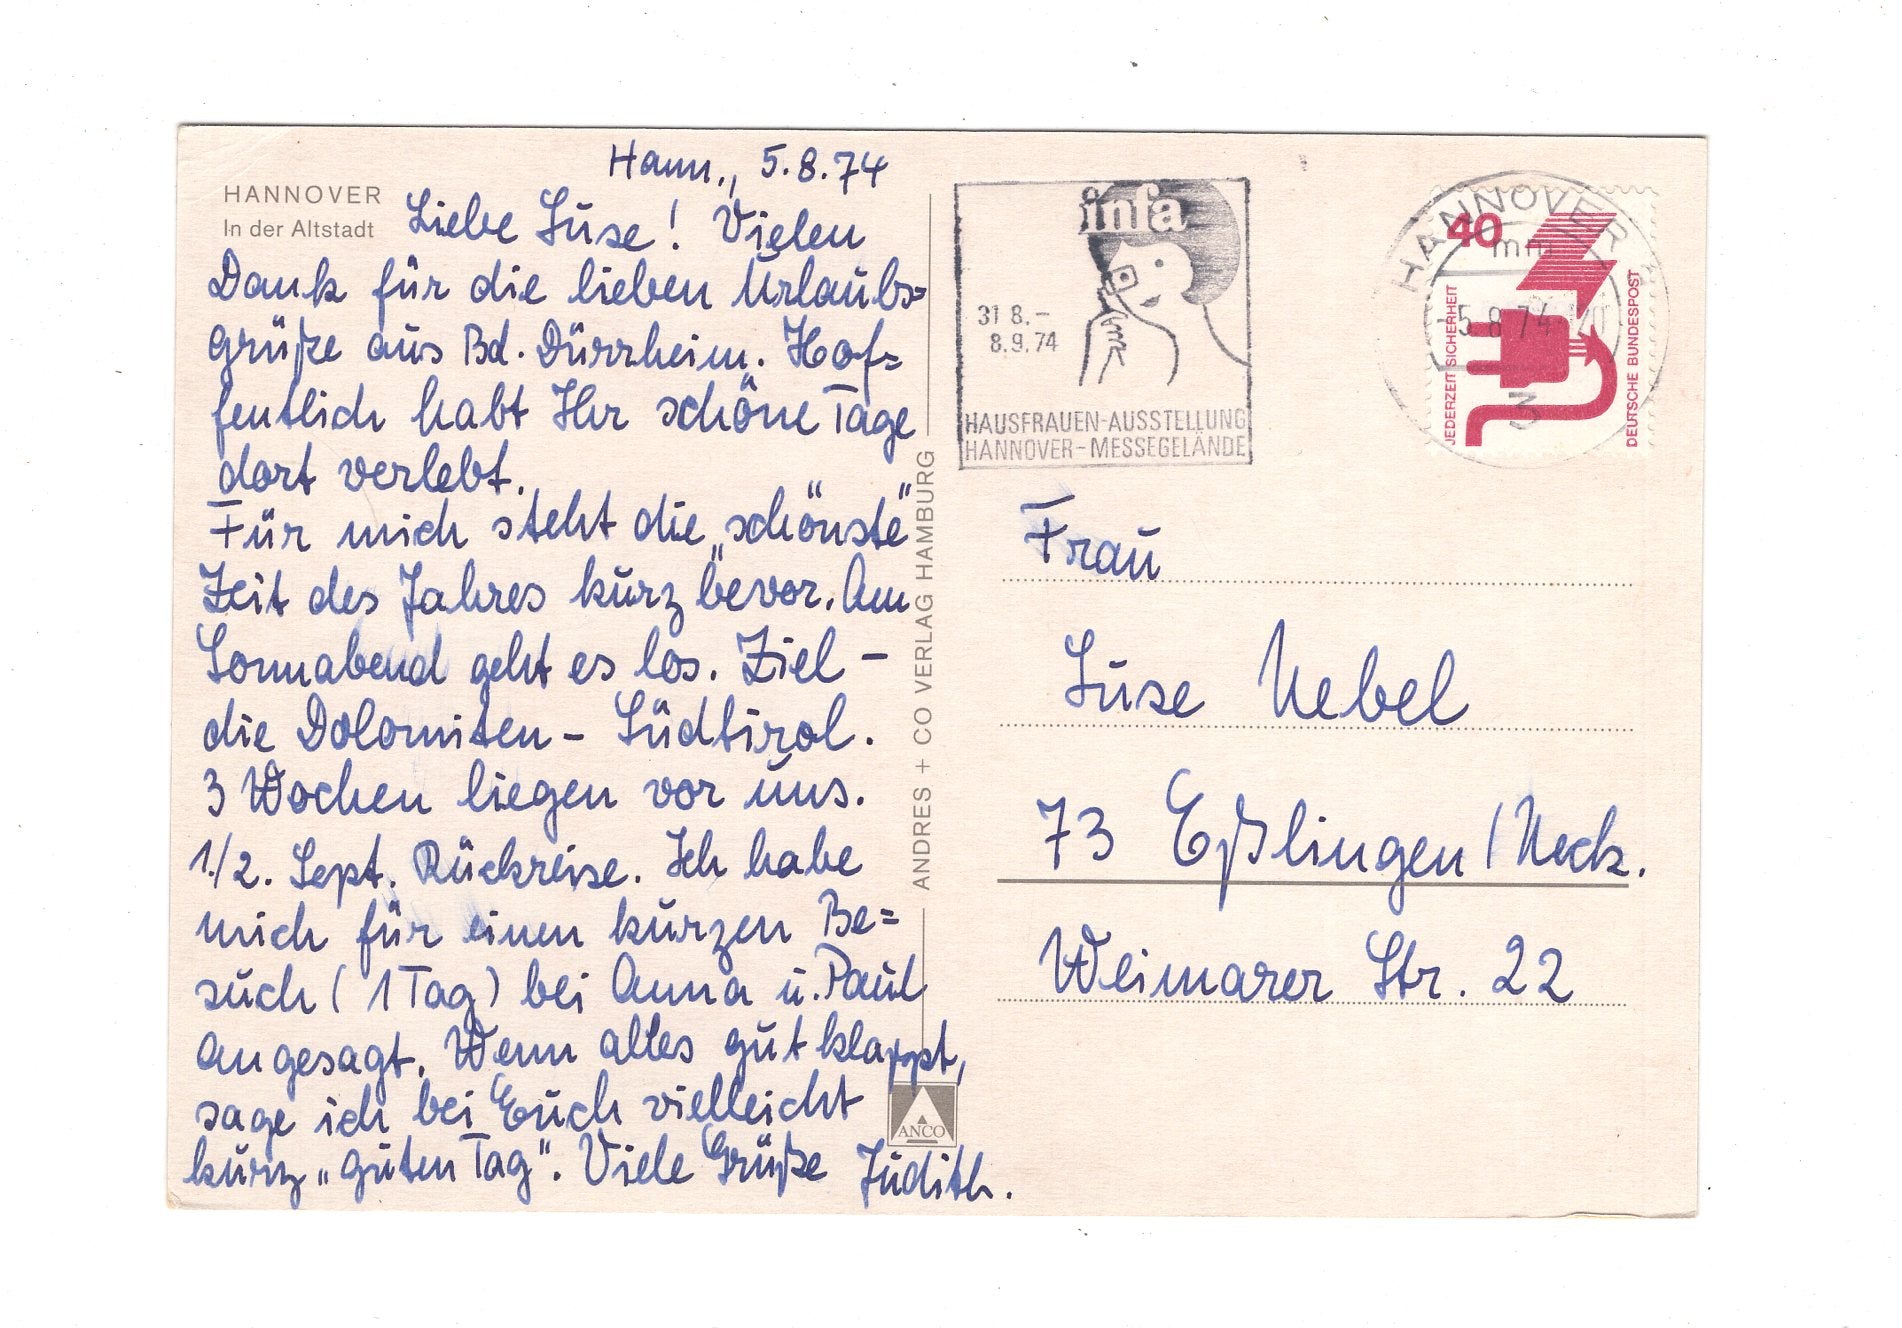 HANNOVER
In der Altstadt
Hann., 5.8.74
Liebe Suse! Vielen
Dank für die lieben Urlaubs=
grüße aus Bd. Dürrheim. Hof=
fentlich habt Ihr schöne Tage
dort verlebt.
Für mich steht die „schönste"
Zeit des Jahres kurz bevor. Am
Sonnabend geht es los. Ziel –
die Dolomiten – Südtirol.
3 Wochen liegen vor uns.
1./2. Sept. Rückreise. Ich habe
mich für einen kurzen Be=
such (1 Tag) bei Anna u. Paul
angesagt. Wenn alles gut klappt,
sage ich bei Euch vielleicht
kurz „guten Tag". Viele Grüße Judith.
ANDRES + CO VERLAG HAMBURG
ANCO
infa
31 8.–
8.9.74
HAUSFRAUEN-AUSSTELLUNG
HANNOVER-MESSEGELÄNDE
HANNOVER
mm
-5.8.74
3
40
JEDERZEIT SICHERHEIT
DEUTSCHE BUNDESPOST
Frau
Suse Nebel
73 Eßlingen/Neck.
Weimarer Str. 22